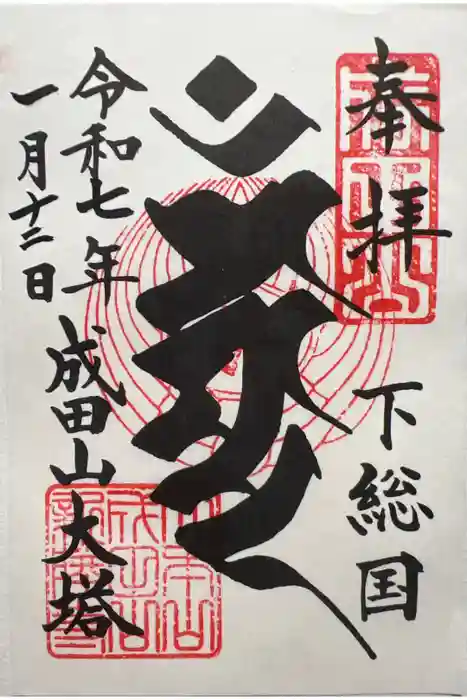 奉拝
下総国
令和七年
一月十二日
成田山大塔